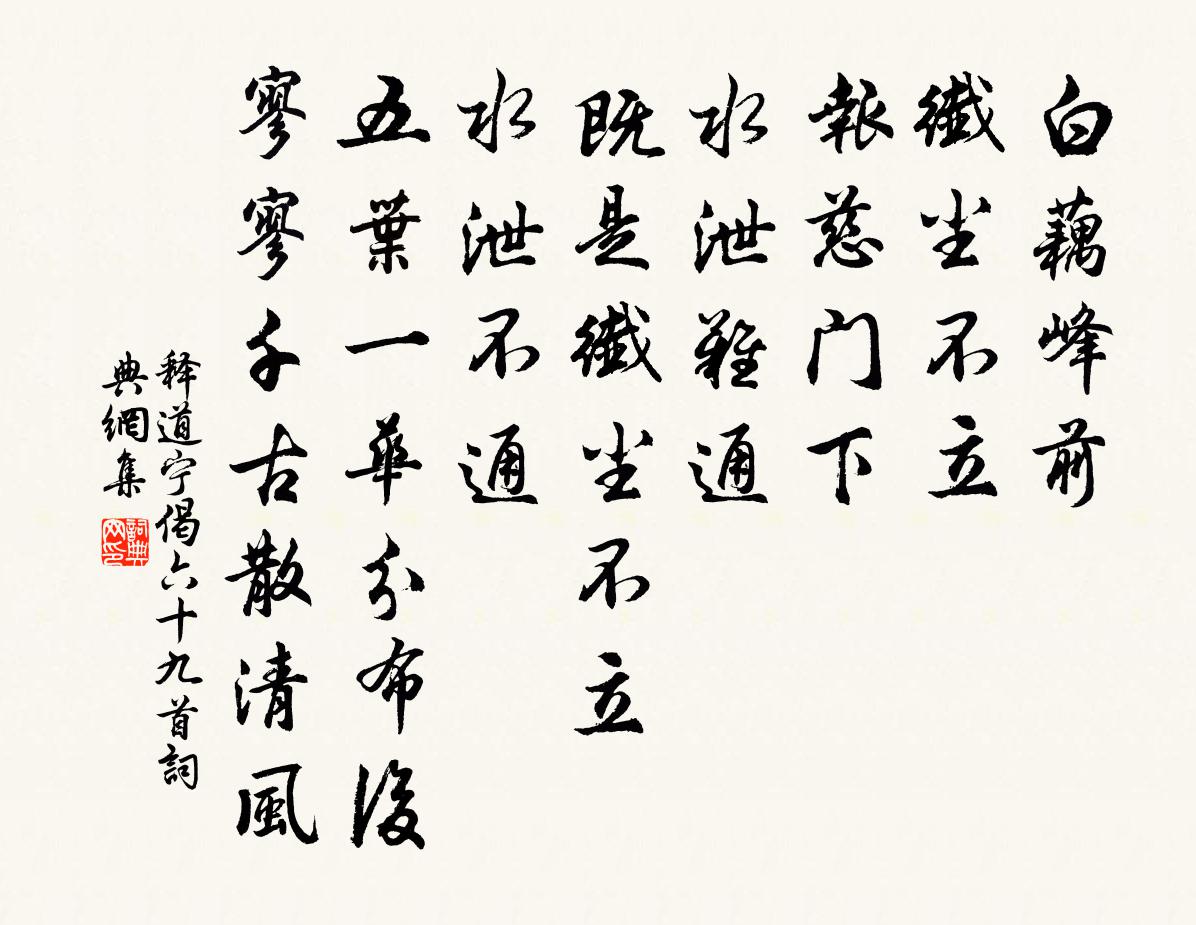 白藕峰前
纖尘不立
報慈门下
水泄難通
既是纖尘不立
水泄不通
五葉一華分布後
寥寥千古散清風
释道宁偈六十九首詞
典網集
詞典网印